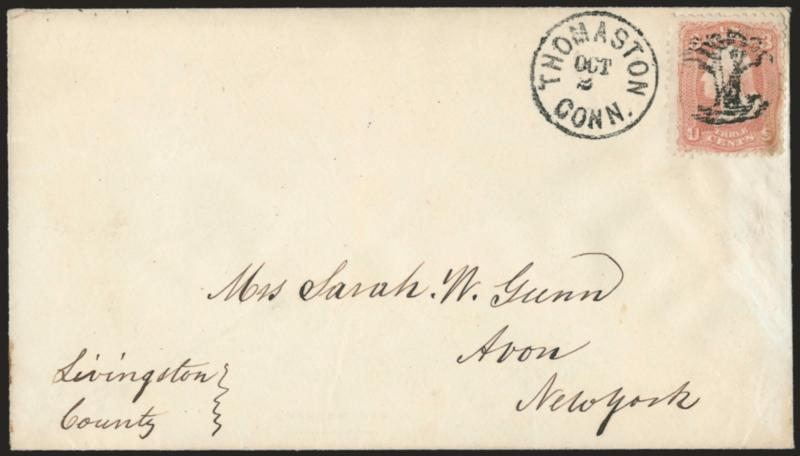 THOMASTON
OCT
2
CONN.
U THREE S
CENTS
Mrs Sarah. W. Gunn
Avon
New York
Livingston
County